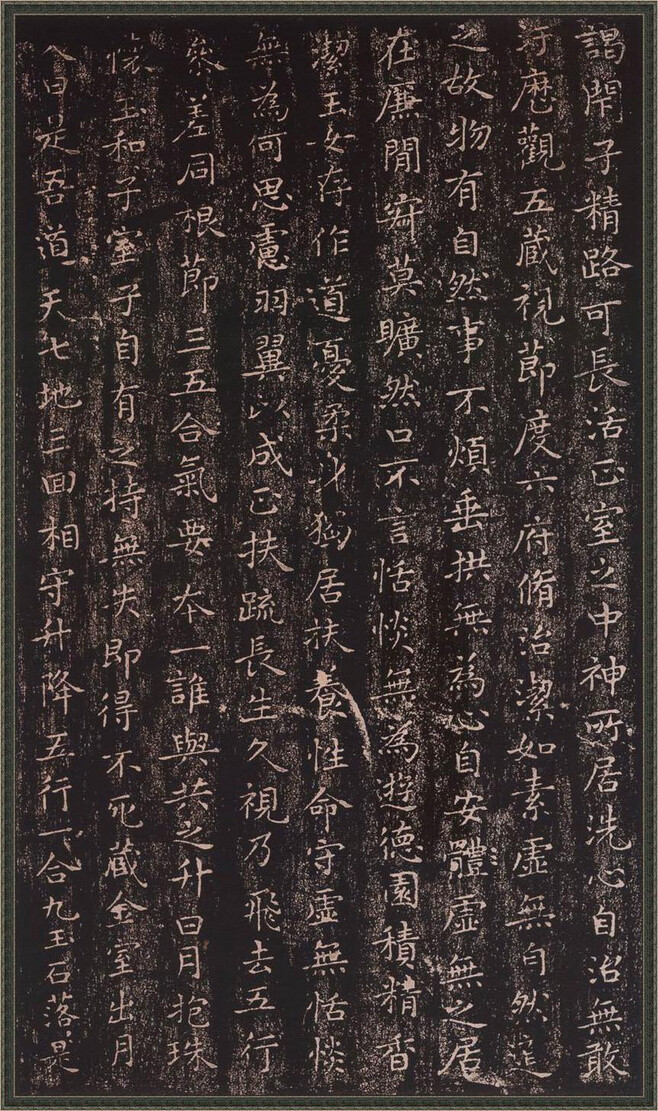 謁閇子精路可長活正室之中神所居洗心自治無敢
汙歷觀五藏視節度六府脩治潔如素虛無自然道
之故物有自然事不煩垂拱無為心自安體虛無之居
在廉間寂莫曠然口不言恬惔無為遊德園積精香
潔玉女存作道憂柔身獨居扶養性命守虛無恬惔
無為何思慮羽翼以成正扶疏長生久視乃飛去五行
參差同根節三五合氣要本一誰與共之升日月抱珠
懷玉和子室子自有之持無失即得不死藏金室出月
入日是吾道天七地三回相守升降五行一合九玉石落〻是